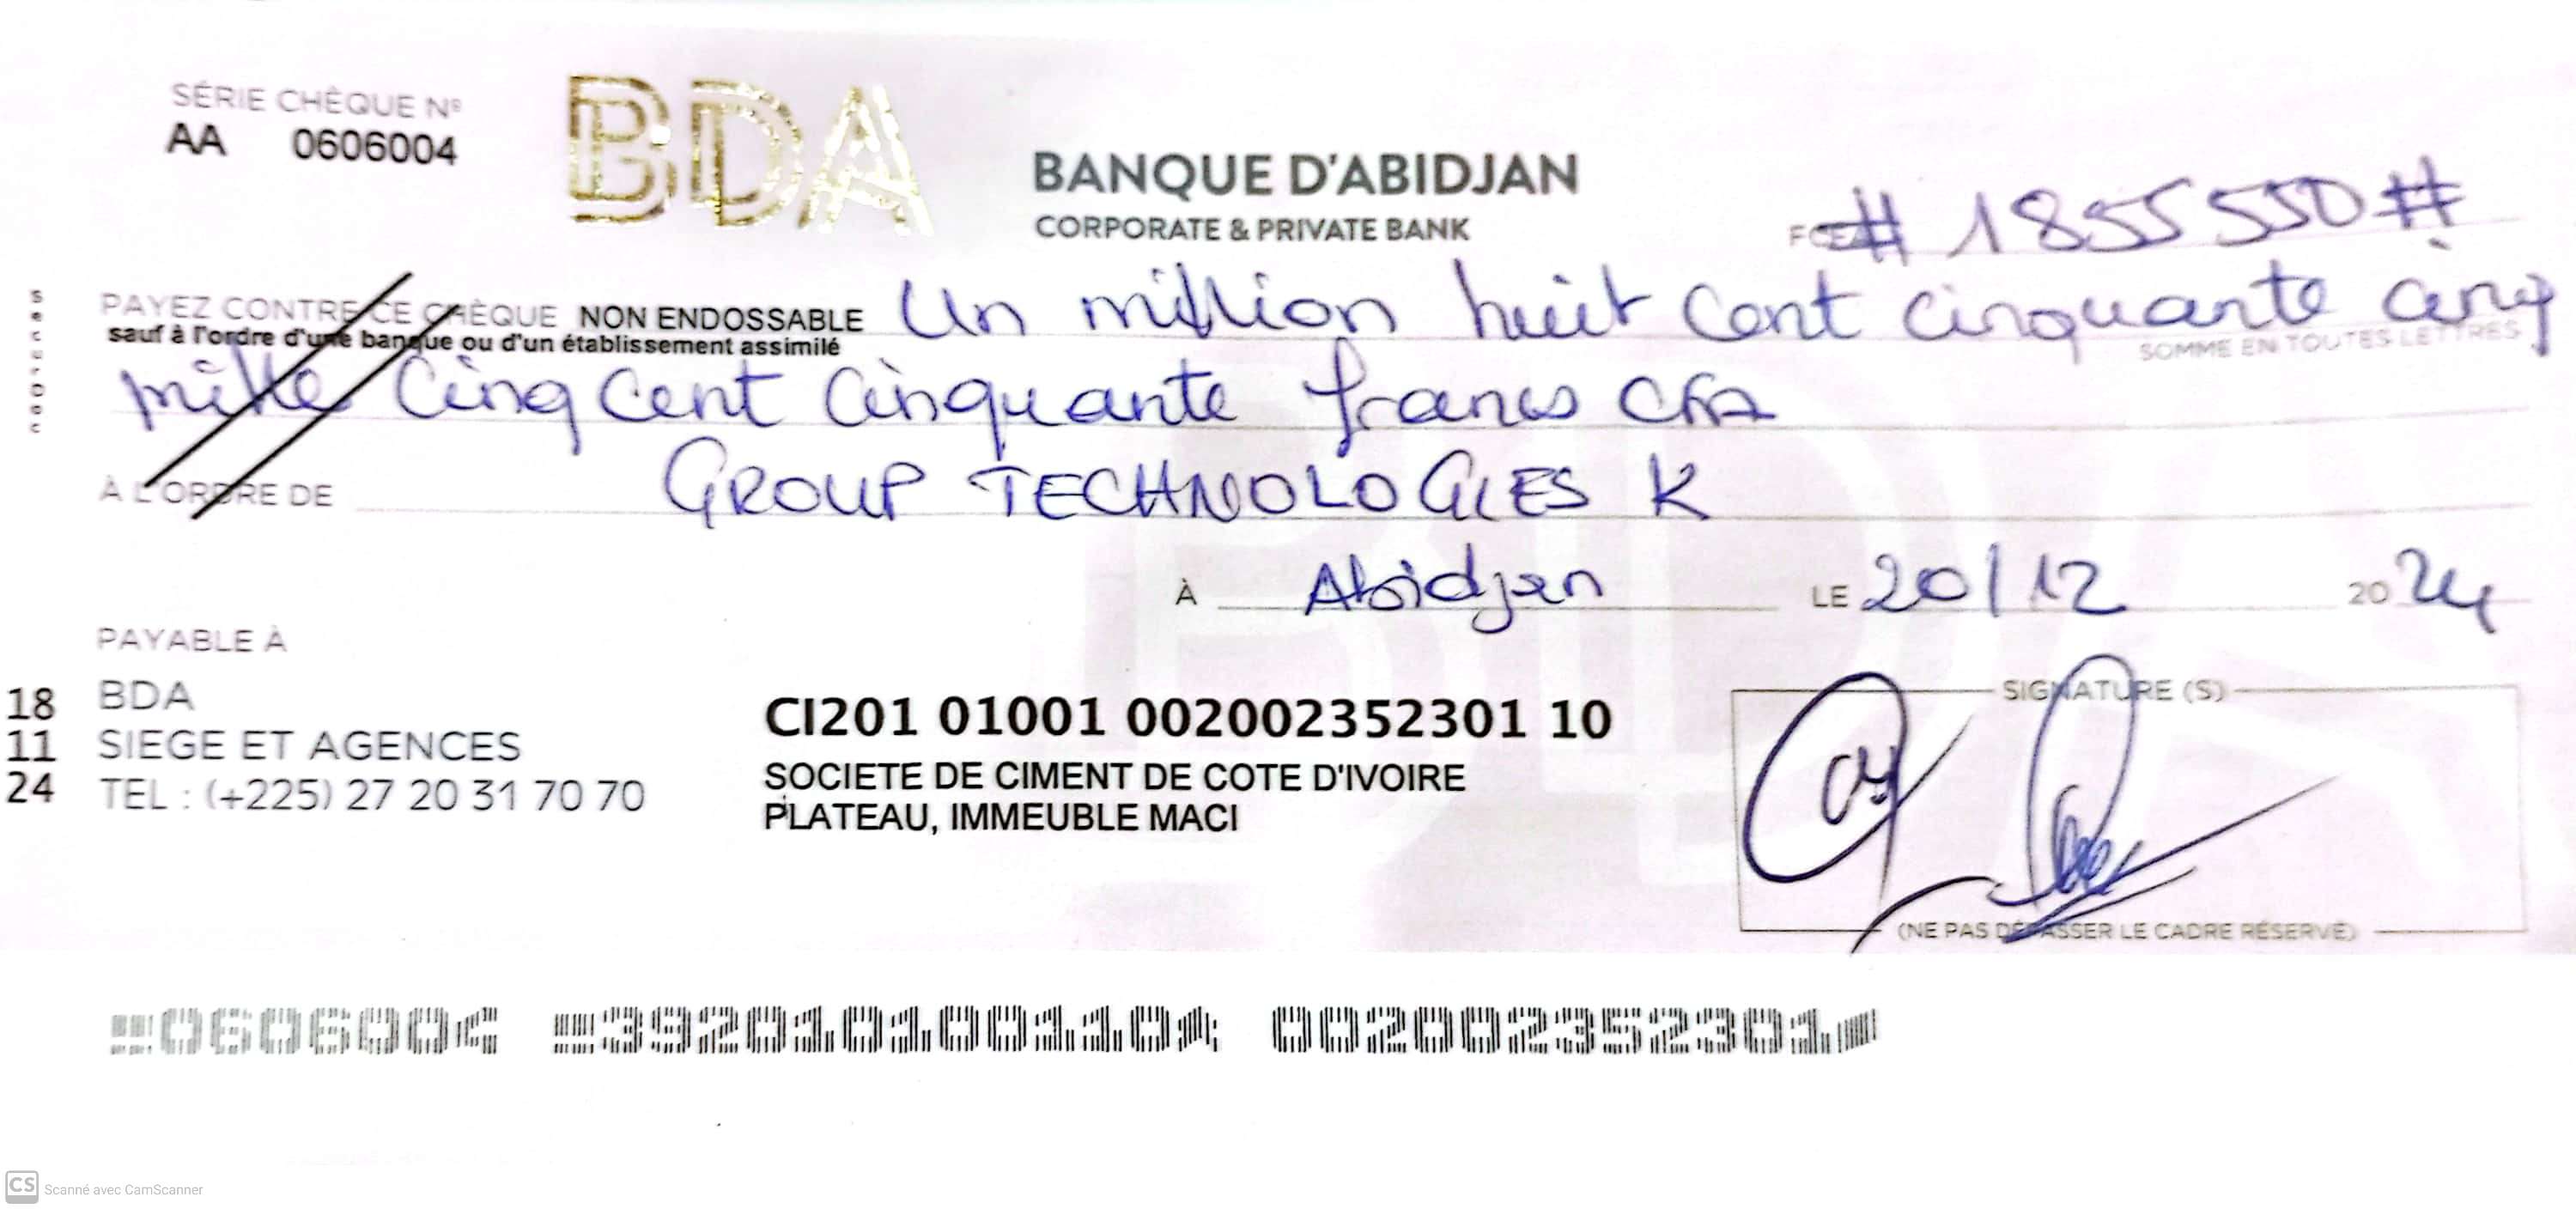 SÉRIE CHÈQUE Nº
AA 0606004
BDA
BANQUE D'ABIDJAN
CORPORATE & PRIVATE BANK
FCFA # 1855550 #
PAYEZ CONTRE CE CHÈQUE NON ENDOSSABLE Un million huit cent cinquante cinq
sauf à l'ordre d'une banque ou d'un établissement assimilé
SOMME EN TOUTES LETTRES
mille cinq cent cinquante francs CFA
À L'ORDRE DE GROUP TECHNOLOGIES K
À Abidjan LE 20/12 2024
PAYABLE À
BDA
SIEGE ET AGENCES
TEL : (+225) 27 20 31 70 70
18
11
24
CI201 01001 002002352301 10
SOCIETE DE CIMENT DE COTE D'IVOIRE
PLATEAU, IMMEUBLE MACI
SIGNATURE (S)
(NE PAS DÉPASSER LE CADRE RÉSERVÉ)
0606004 392010100110 002002352301
CS Scanné avec CamScanner